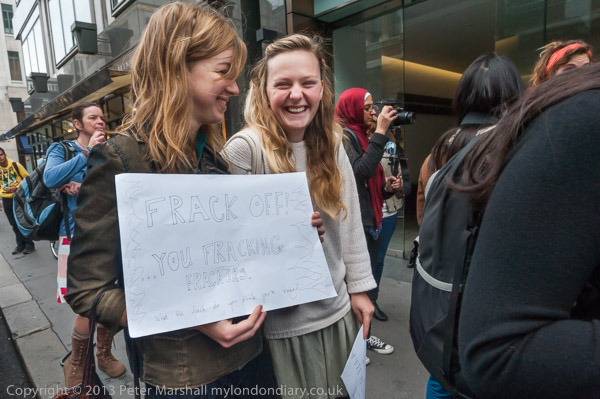 FRACK OFF!
...YOU FRACKING
FRACKERS.
Copyright © 2013 Peter Marshall mylondondiary.co.uk